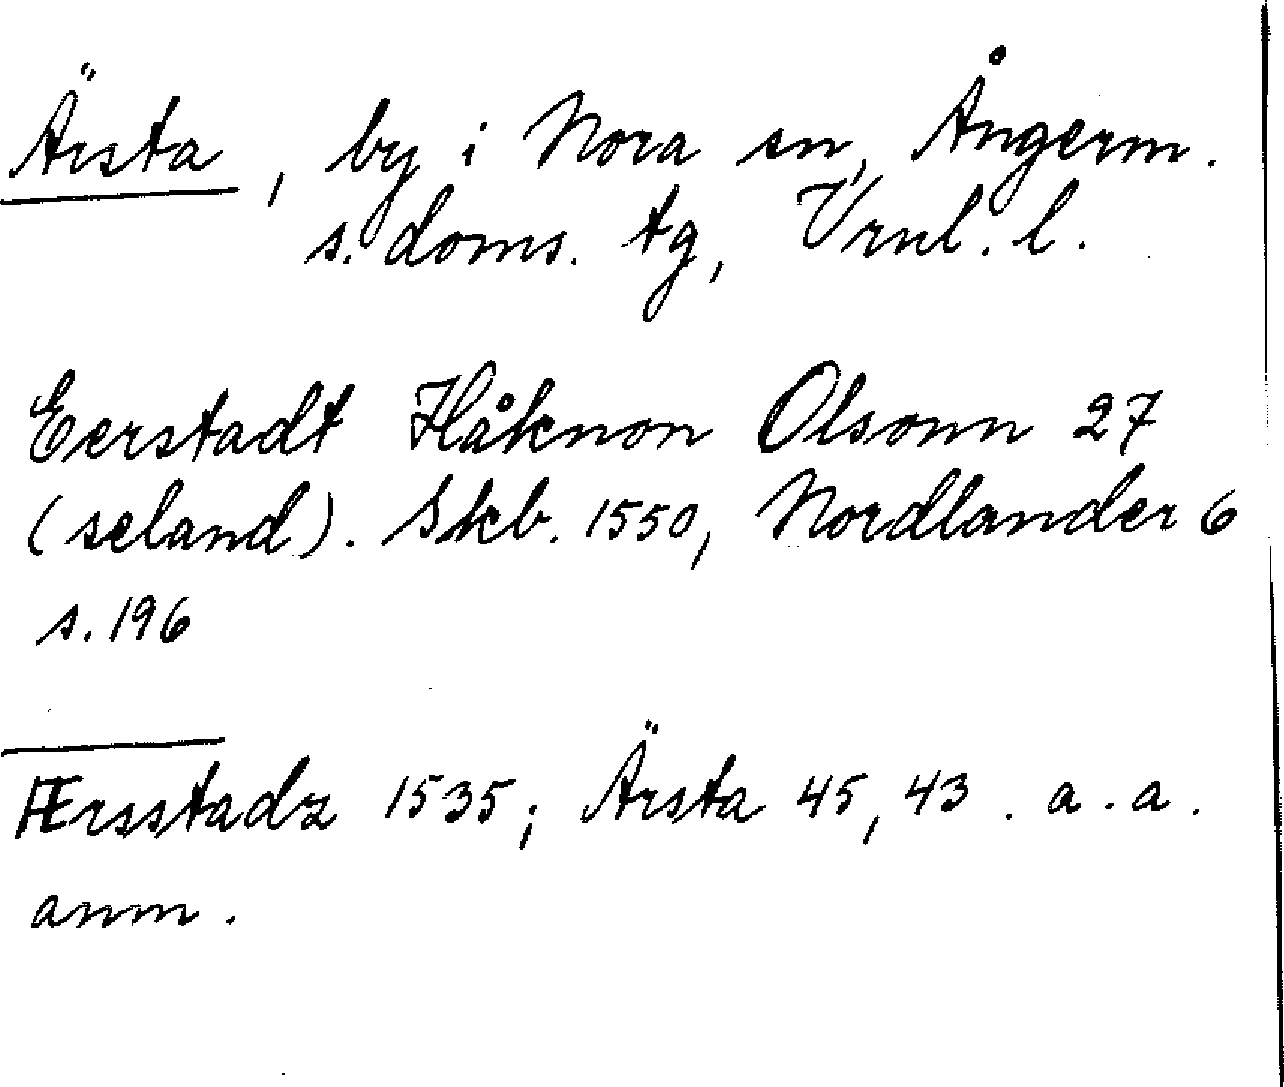 Ärsta, by i Nora sn, Ångerm.
s. doms. tg, Vrnl. l.
Eerstadt Håknon Olsonn 27
(seland). Skb. 1550, Nordlander 6
s. 196
Ærsstadz 1535; Ärsta 45, 43. a. a.
anm.